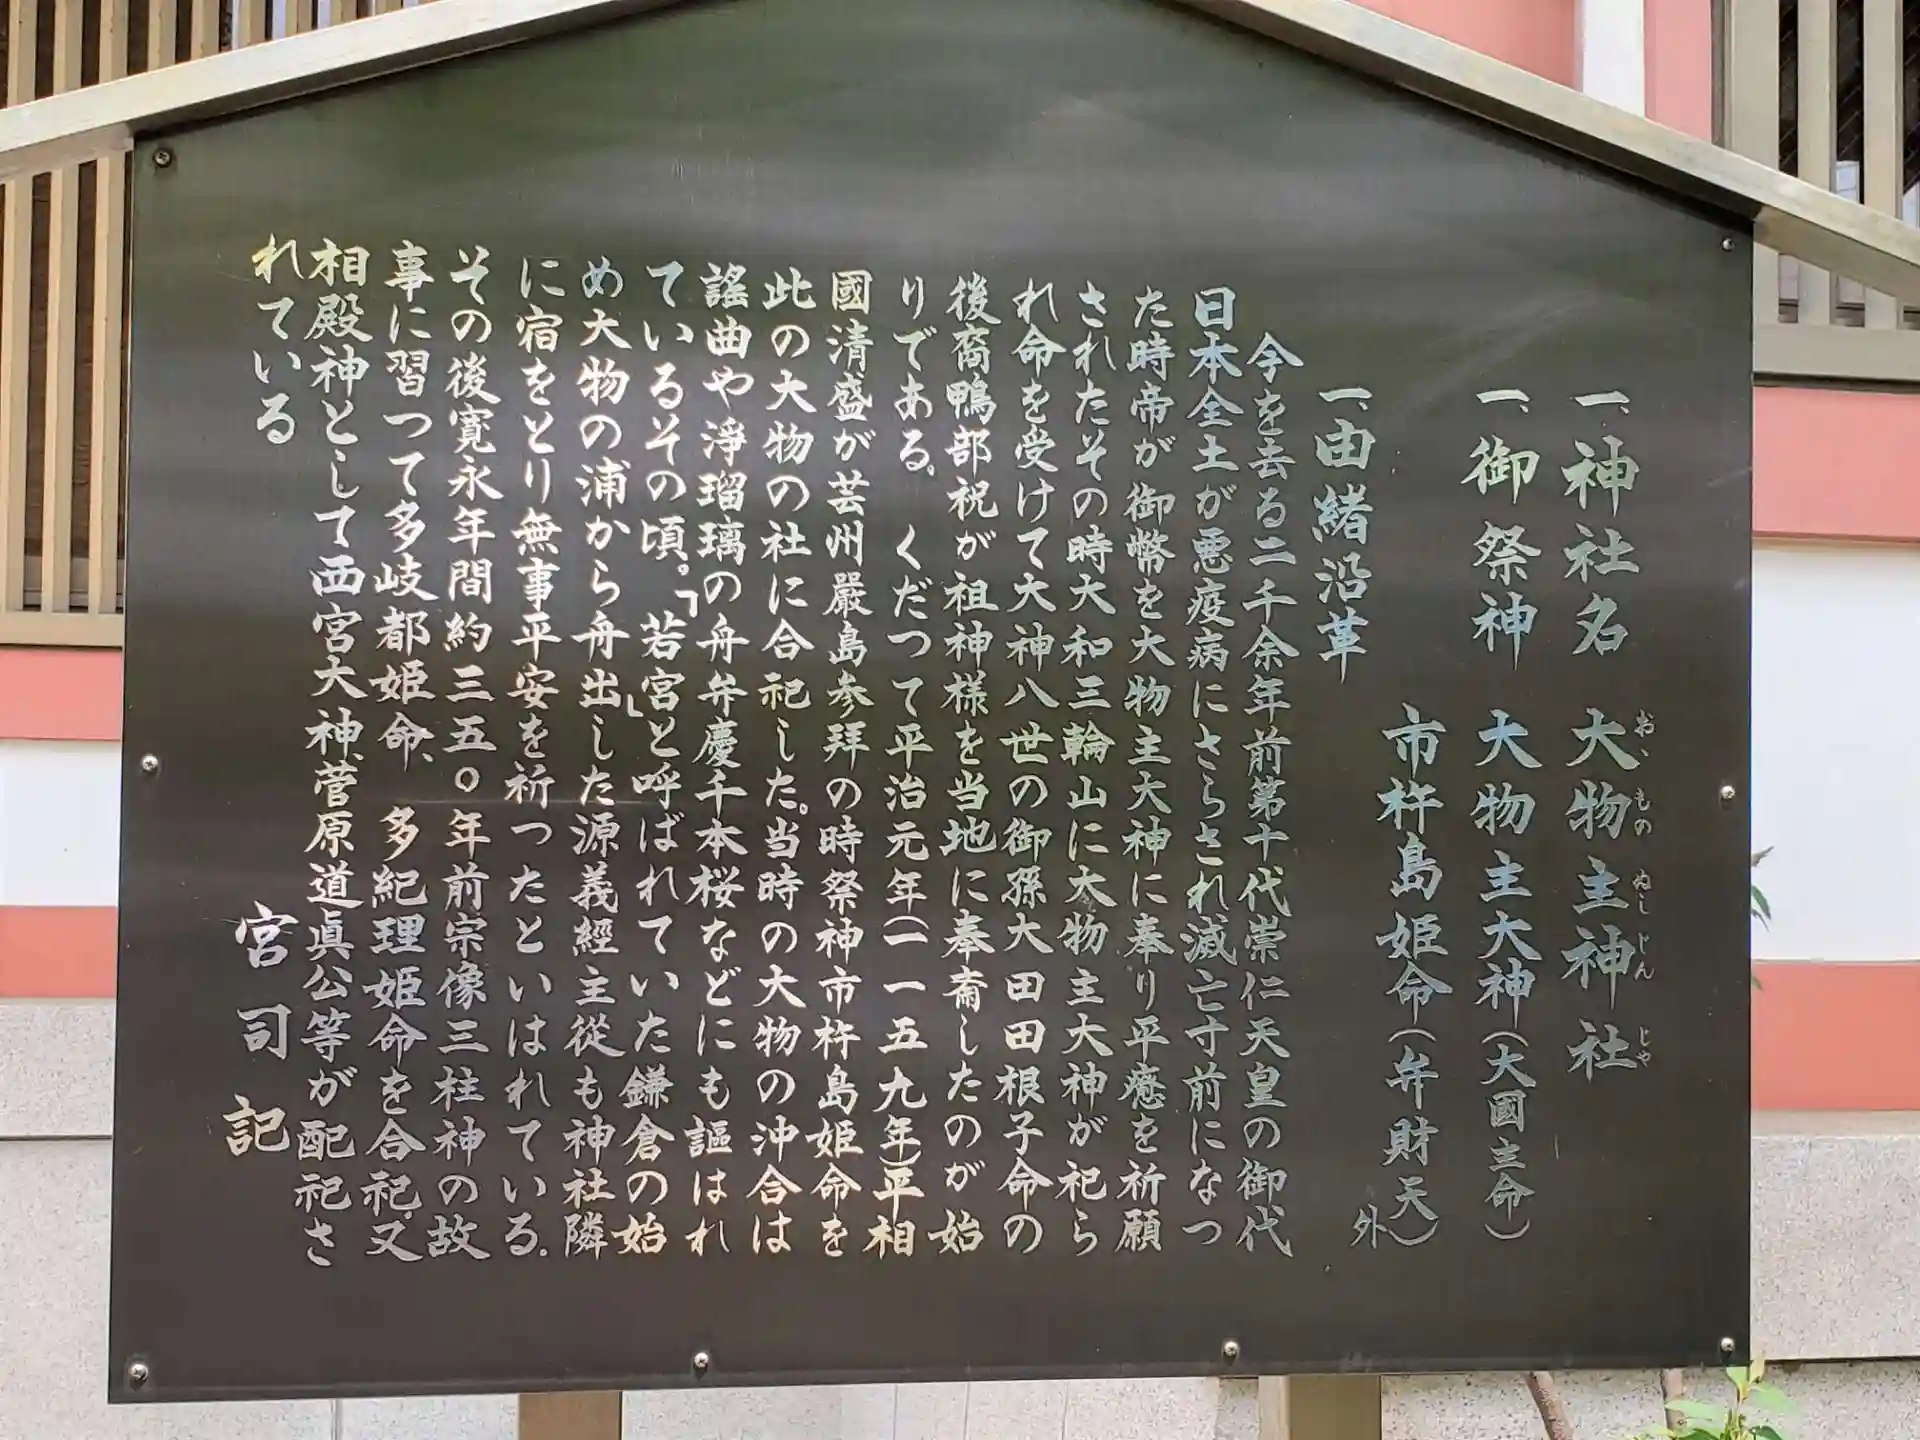 一、神社名　大物主神社
おゝものぬしじんじゃ
一、御祭神　大物主大神（大國主命）
市杵島姫命（弁財天）
外
一、由緒沿革
今を去る二千余年前第十代崇仁天皇の御代
日本全土が悪疫病にさらされ滅亡寸前になつ
た時帝が御幣を大物主大神に奉り平癒を祈願
されたその時大和三輪山に大物主大神が祀ら
れ命を受けて大神八世の御孫大田田根子命の
後裔鴨部祝が祖神様を当地に奉斎したのが始
りである。くだつて平治元年（一一五九年）平相
國清盛が芸州嚴島参拜の時祭神市杵島姫命を
此の大物の社に合祀した。当時の大物の沖合は
謡曲や浄瑠璃の舟弁慶千本桜などにも謳はれ
ているその頃。「若宮」と呼ばれていた鎌倉の始
め大物の浦から舟出した源義經主從も神社隣
に宿をとり無事平安を祈つたといはれている。
その後寛永年間約三五〇年前宗像三柱神の故
事に習つて多岐都姫命、多紀理姫命を合祀、又
相殿神として西宮大神、菅原道眞公等が配祀さ
れている
宮司記